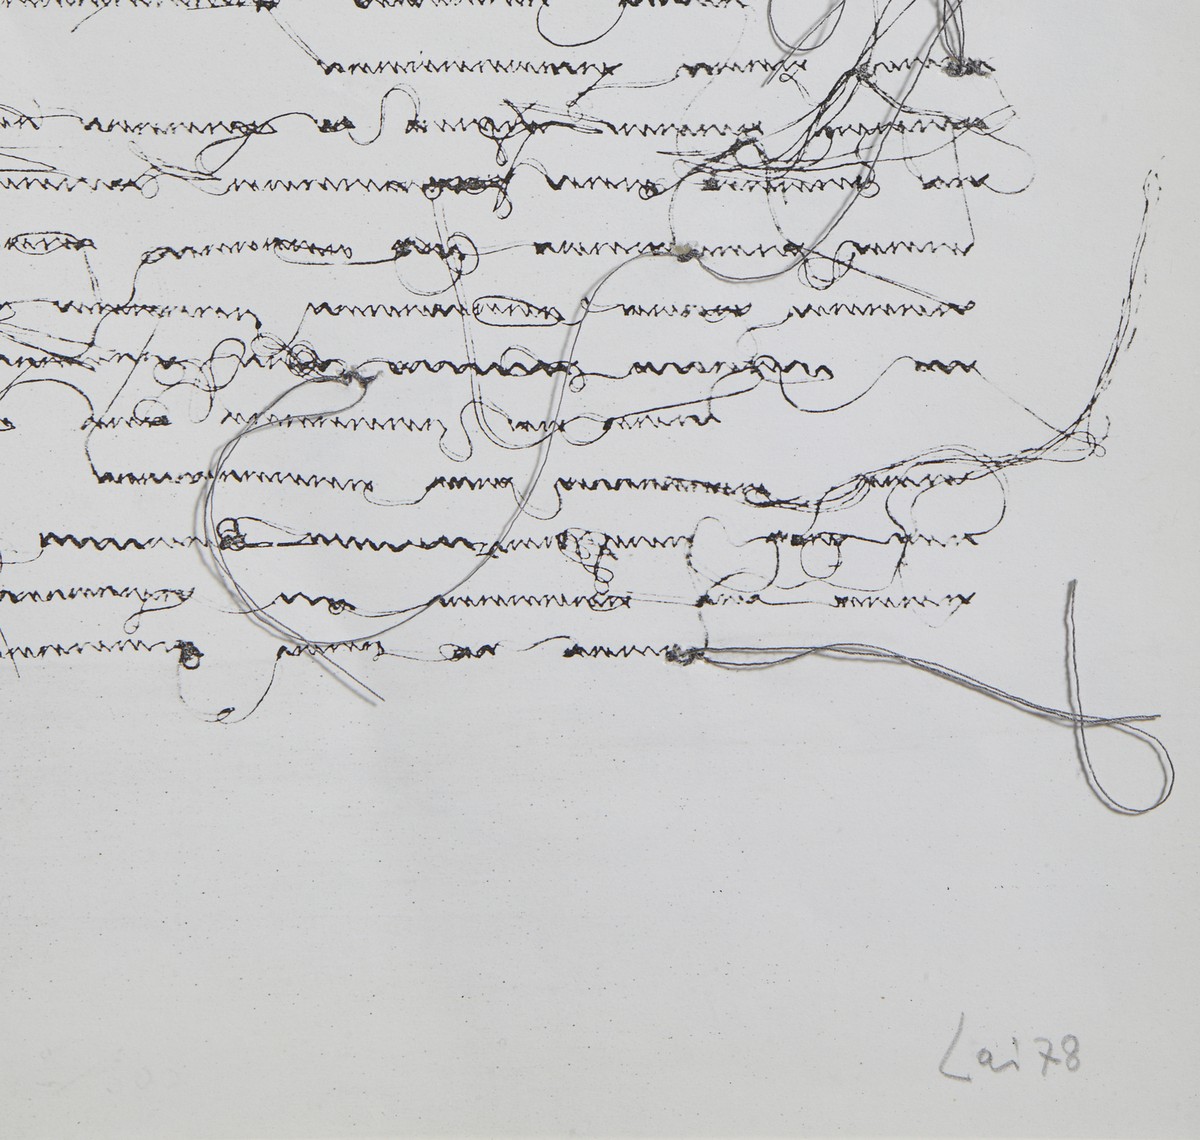 Lai 78